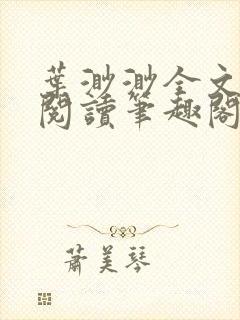 葉渺渺全文
閱讀筆趣閣
蕭美琴